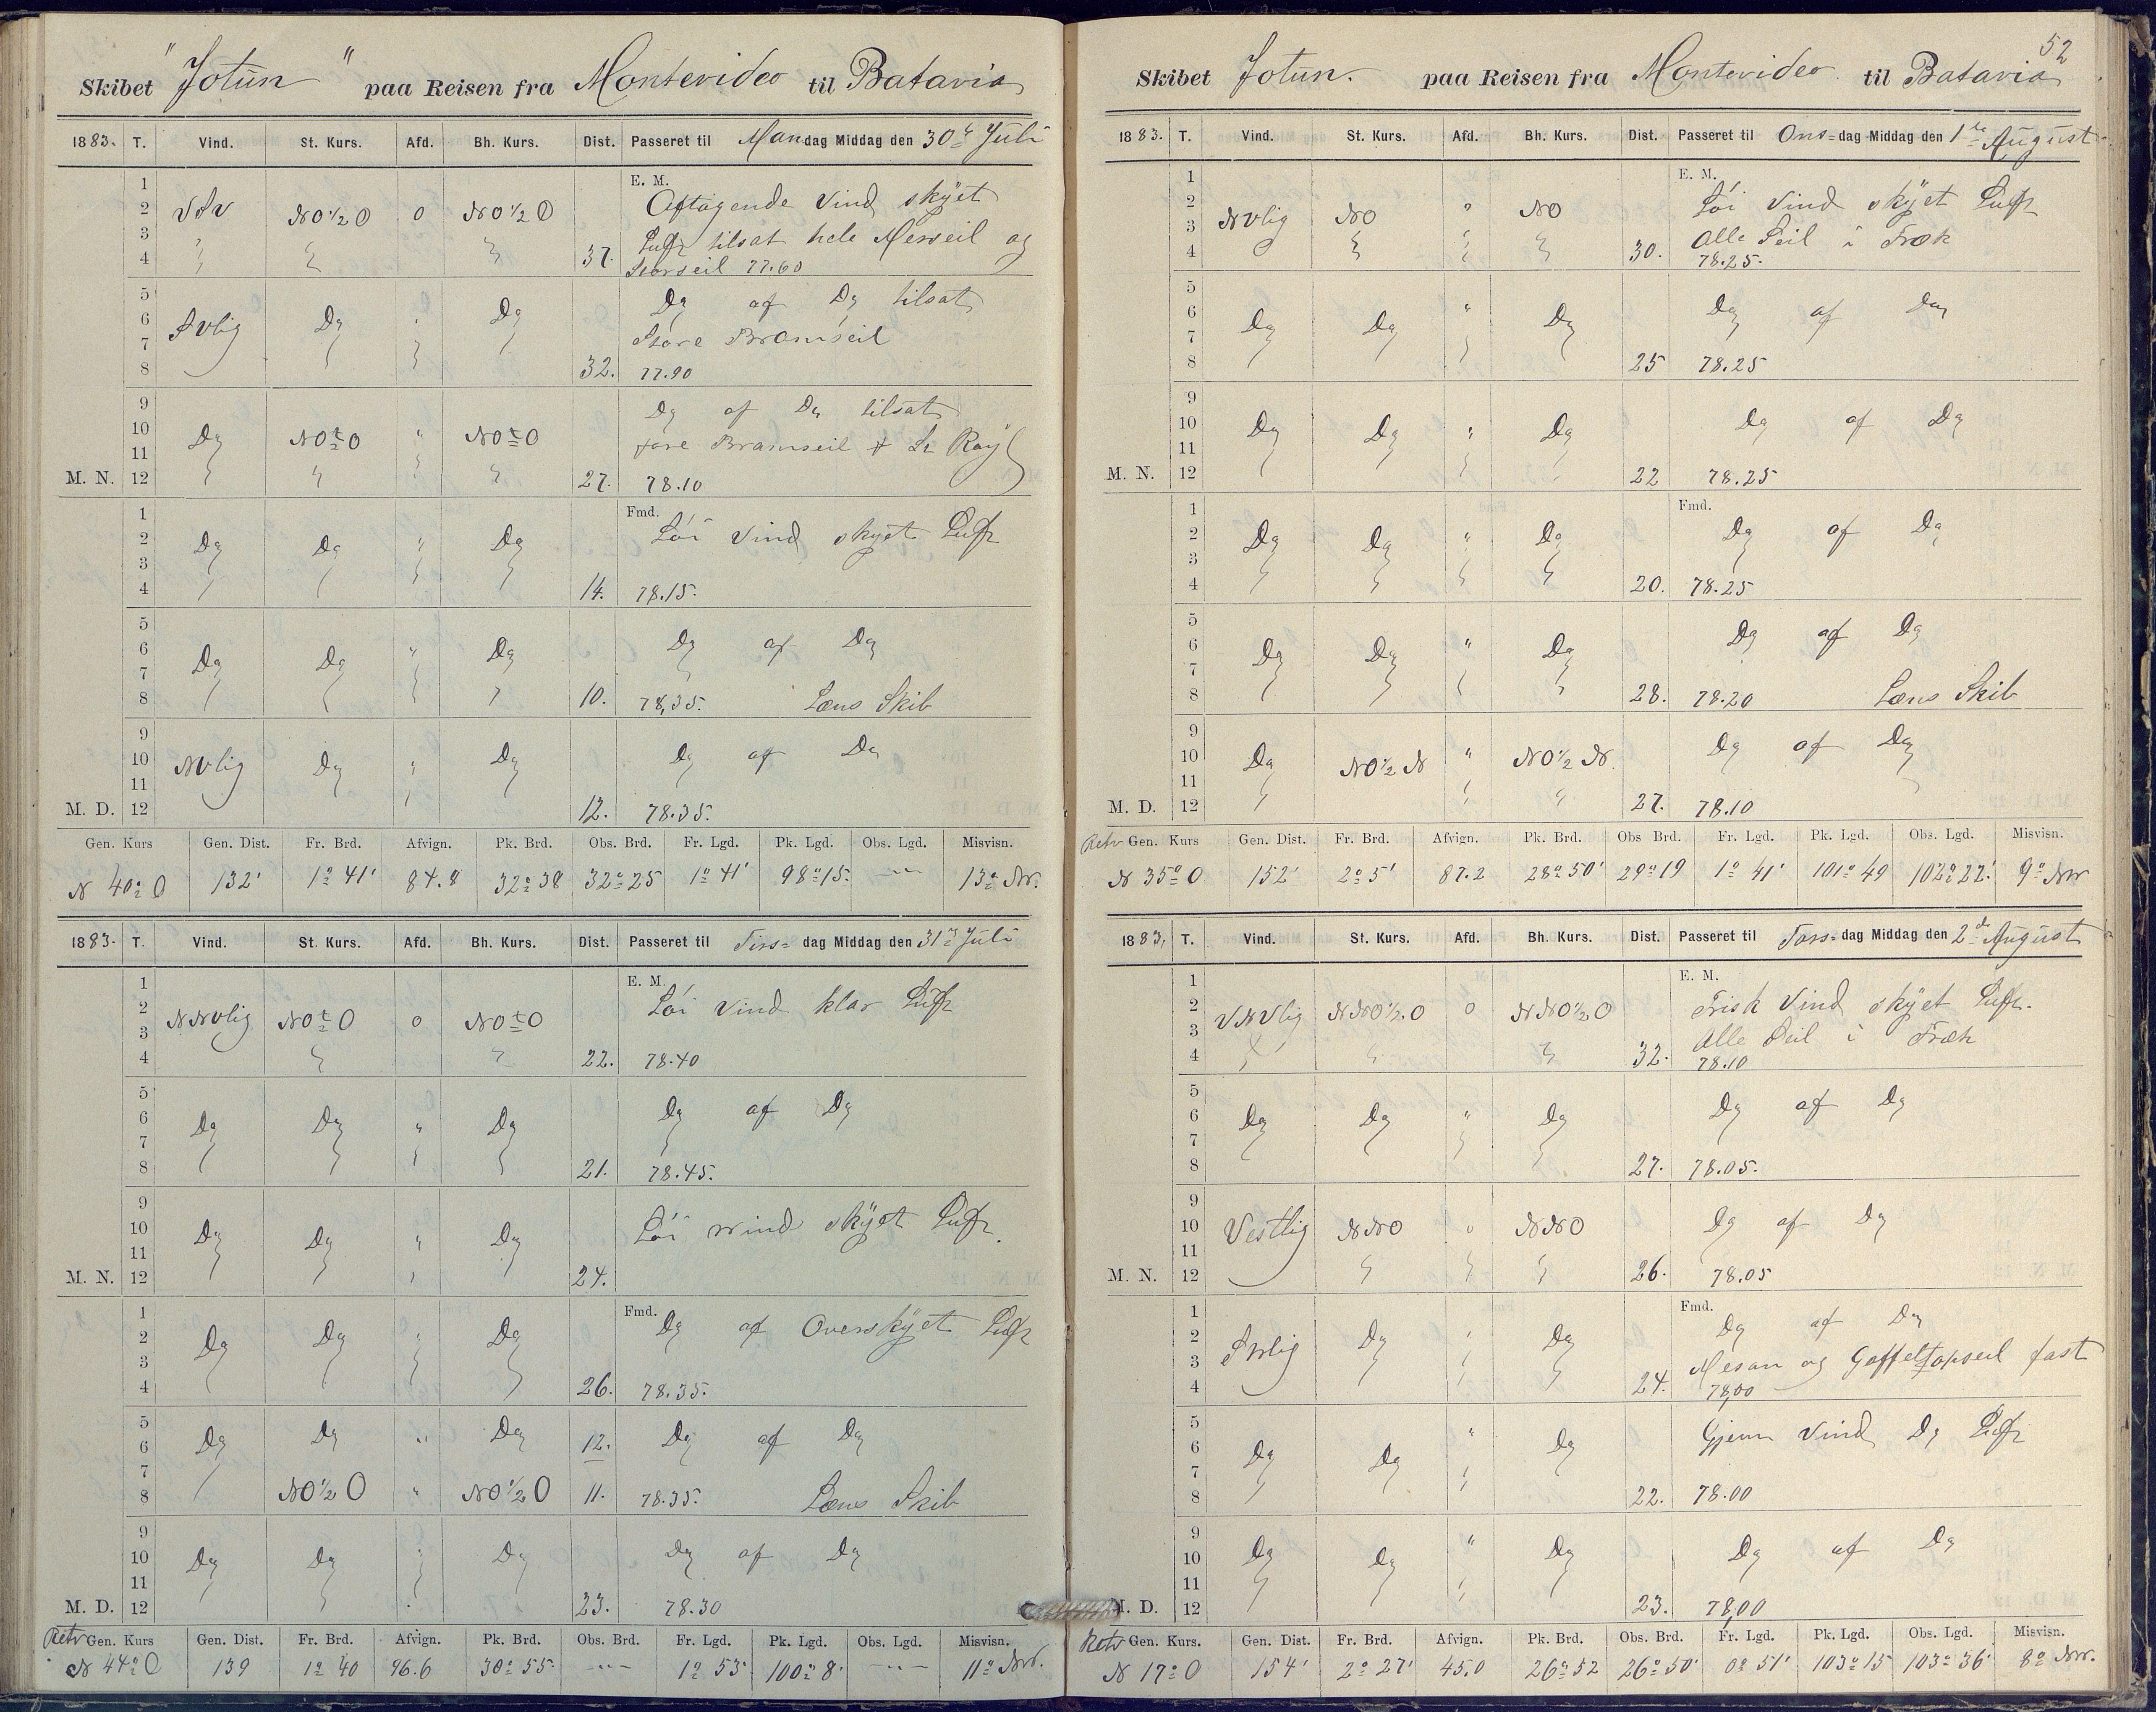 Skibet "Jotun" paa Reisen fra Montevideo til Batavia
1883. T. Vind. St. Kurs. Afd. Bh. Kurs. Dist. Passeret til Mandag Middag den 30te Juli
1
E. M.
2 VSV NO½O 0 NO½O Aftagende Vind skyet
3 Luft tilsat hele Mersseil og
4 " " " 37. Storseil 77.60
5 Do af Do tilsat
6 SVlig Do " Do
7 Store Bramseil
8 32. 77.90
9 Do af Do tilsat
10 Do NOtO " NOtO
11 fore Bramseil & St Royl
M. N. 12 " " " " 27. 78.10
1 Fmd.
2 Do Do " Do Löi Vind skyet Luft
3
4 14. 78.15.
5
6 Do Do " Do Do af Do
7
8 10. 78,35. Læns Skib
9
10 NVlig Do " Do Do af Do
11
M. D. 12 12. 78.35.
Gen. Kurs Gen. Dist. Fr. Brd. Afvign. Pk. Brd. Obs. Brd. Fr. Lgd. Pk. Lgd. Obs. Lgd. Misvisn.
N 40° O 132' 1° 41' 84.8 32° 38 32° 25 1° 41' 98° 15. -"- 13° NW.
1883. T. Vind. St. Kurs. Afd. Bh. Kurs. Dist. Passeret til Tirs- dag Middag den 31te Juli
1 E. M.
2 NNVlig NOtO 0 NOtO Löi Vind klar Luft
3
4 " " 22. 78.40
5
6 Do Do " Do Do af Do
7
8 21. 78.45.
9
10 Do Do " Do Löi Wind skÿet Luft.
11
M. N. 12 24.
1 Fmd.
2 Do Do " Do Do af Overskÿet Luft
3
4 26. 78.35.
5
6 Do Do " Do 12. Do af Do
7
8 NO½O " NO½O 11. 78.35. Læns Skib
9
10 Do Do " Do Do af Do
11
M. D. 12 23. 78.30
Retv Gen. Kurs Gen. Dist. Fr. Brd. Afvign. Pk. Brd. Obs. Brd. Fr. Lgd. Pk. Lgd. Obs. Lgd. Misvisn.
N 44° O 139 1° 40 96.6 30° 55. -"- 1° 53' 100° 8' -"- 11° NW.
52
Skibet Jotun. paa Reisen fra Montevideo til Batavia
1883. T. Vind. St. Kurs. Afd. Bh. Kurs. Dist. Passeret til Ons- dag Middag den 1ste August
1 E. M.
2 NVlig NO " NO Löi Vind skÿet Luft
3 Alle Seil i Træk
4 " " " 30. 78.25.
5
6 Do Do " Do Do af Do
7
8 25 78.25
9
10 Do Do " Do Do af Do
11
M. N. 12 22 78.25
1 Fmd.
2 Do Do " Do Do af Do
3
4 20. 78.25
5
6 Do Do " Do Do af Do
7
8 28. 78.20 Læns Skib
9
10 Do NO½N " NO½N. Do af Do
11
M. D. 12 27. 78.10
Retv Gen. Kurs Gen. Dist. Fr. Brd. Afvign. Pk. Brd. Obs Brd. Fr. Lgd. Pk. Lgd. Obs. Lgd. Misvisn.
N 35° O 152' 2° 5' 87.2 28° 50' 29° 19 1° 41' 101° 49 102° 22' 9° NW
1883, T. Vind. St. Kurs. Afd. Bh. Kurs. Dist. Passeret til Tors- dag Middag den 2d August
1 E. M.
2 VNVlig NNO½O 0 NNO½O Frisk Vind skÿet Luft.
3 Alle Seil i Træk
4 " " " 32. 78.10
5
6 Do Do " Do Do af Do
7
8 27. 78.05.
9
10 Vestlig NNO " NNO Do af Do
11
M. N. 12 26. 78.05
1 Fmd.
2 SVlig Do " Do Do af Do
3 Mesan og Gaffeltopseil fast
4 24. 78,00
5
6 Do Do " Do Gjenn Vind Do Luft
7
8 22. 78.00
9
10 Do Do " Do Do af Do
11
M. D. 12 23. 78,00
Retv Gen. Kurs. Gen. Dist. Fr. Brd. Afvign. Pk. Brd. Obs. Brd. Fr. Lgd. Pk. Lgd. Obs. Lgd. Misvisn.
N 17° O 154' 2° 27' 45.0 26° 52 26° 50' 0° 51' 103° 15 103° 36' 8° NW.